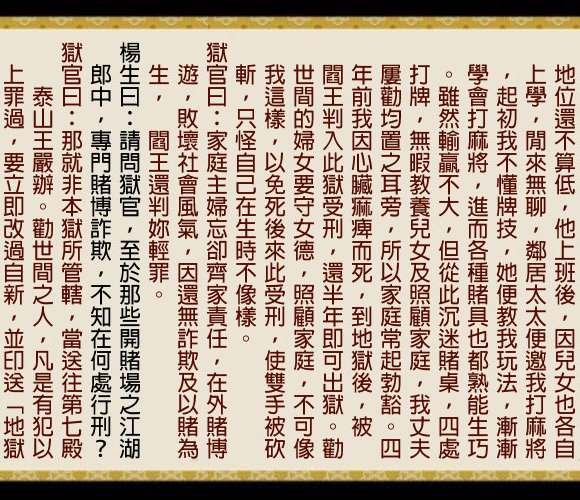 地位還不算低，他上班後，因兒女也各自
上學，閒來無聊，鄰居太太便邀我打麻將
，起初我不懂牌技，她便教我玩法，漸漸
學會打麻將，進而各種賭具也都熟能生巧
。雖然輸贏不大，但從此沉迷賭桌，四處
打牌，無暇教養兒女及照顧家庭，我丈夫
屢勸均置之耳旁，所以家庭常起勃豀。四
年前我因心臟痲痺而死，到地獄後，被
閻王判入此獄受刑，還半年即可出獄。勸
世間的婦女要守女德，照顧家庭，不可像
我這樣，以免死後來此受刑，使雙手被砍
斬，只怪自己在生時不像樣。
獄官曰：家庭主婦忘卻齊家責任，在外賭博
遊，敗壞社會風氣，因還無詐欺及以賭為
生，　閻王還判妳輕罪。
楊生曰：請問獄官，至於那些開賭場之江湖
郎中，專門賭博詐欺，不知在何處行刑？
獄官曰：那就非本獄所管轄，當送往第七殿
泰山王嚴辦。勸世間之人，凡是有犯以
上罪過，要立即改過自新，並印送「地獄